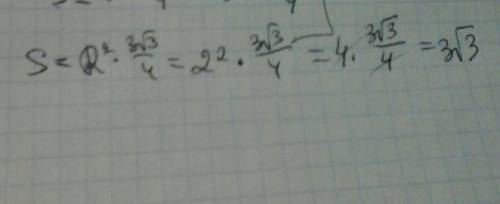 S = R² · 3√3/4 = 2² · 3√3/4 = 4 · 3√3/4 = 3√3